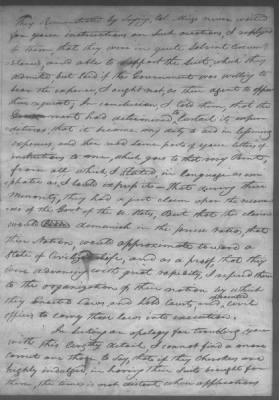 They Remonstrated by saying, Col. Meigs never waited
for your instructions on such occasions. I replied
to them, that they were in quite Solvent Circum-
stances, and able to support the Suit, which they
admitted, but said if the Government was willing to
bear the expense, I ought not, as their agent to oppose
their request; In conclusion, I told them, that the
Government had determined to Curtail its expen-
ditures, that it became my duty to aid in lessening
expenses, and then read some parts of your letters of
instructions to me, which goes to that very Point,
from all which, I Stated, in language as em-
phatic as I could express it — That during their
Minority, they had a just claim upon the resour-
ces of the Govt. of the U. States, But that the claims
would diminish in the Precise Ratio, that
their Nation would approximate toward a
State of Civilized life, and as a proof that they
were advancing with great rapidity, I referred them
to the organization of their nation by which
they Enacted Laws, and held Courts, and appointed Civil
officers to carry these laws into execution.
In letting an apology for troubling you
with this lengthy detail, I cannot find a more
correct one than to Say, that if they Cherokees are
highly indulged, in having their Suit brought for
them, the time is not distant when applications